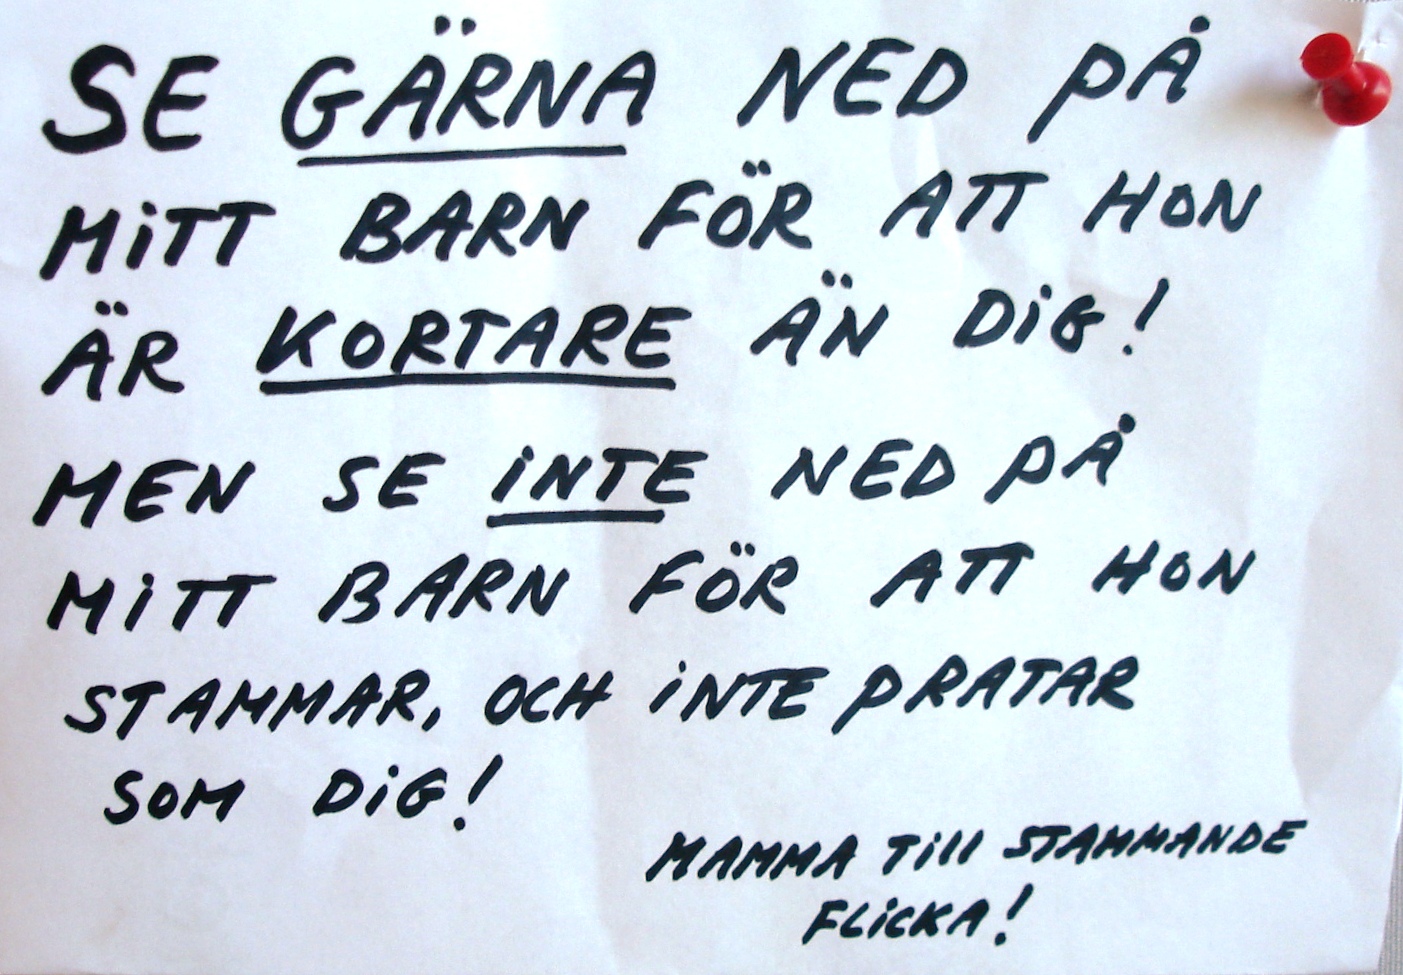 SE GÄRNA NED PÅ
MITT BARN FÖR ATT HON
ÄR KORTARE ÄN DIG!
MEN SE INTE NED PÅ
MITT BARN FÖR ATT HON
STAMMAR, OCH INTE PRATAR
SOM DIG!
MAMMA TILL STAMMANDE
FLICKA!